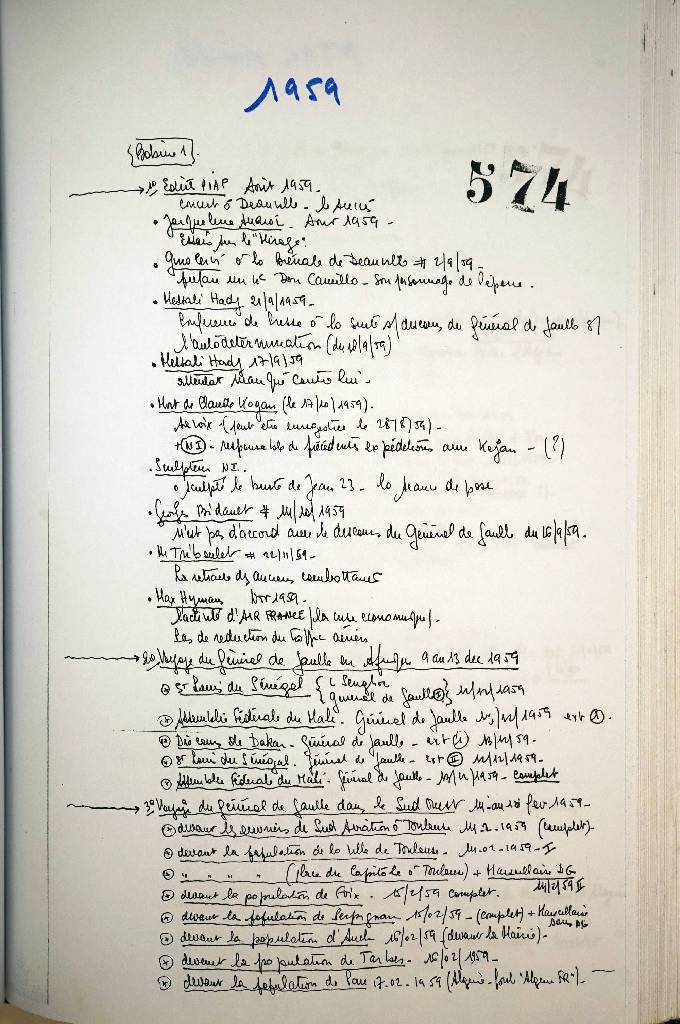 1959
{Bobine 1}.
574
1º Edith PIAF Août 1959.
concert à Deauville - le succès
• Jacqueline Auriol. Août 1959 -
Essais sur le "Mirage".
• Gino Cervi à la Biennale de Deauville # 2/9/59 -
prépare un 4e Don Camillo - son personnage de Pépone.
• Messali Hadj 21/9/1959 -
Conférence de Presse à la suite s/ discours du Général de Gaulle s/
l'autodétermination (du 16/9/59)
• Messali Hadj 17/9/59
attentat manqué contre lui -
• Mort de Claude Kogan (le 17/10/1959).
sa voix - (peut être enregistrée le 28/8/59) -
+ (NI) : responsable de précédents expéditions avec Kogan - (?)
• Sculpteur NI.
a sculpté le buste de Jean 23 - la séance de pose
• Georges Bidault # 14/10/1959
n'est pas d'accord avec le discours du Général de Gaulle du 16/9/59.
• M. Triboulet # 22/11/59 -
La retraite des anciens combattants
• Max Hymans Nov 1959 -
l'activité d'AIR FRANCE / la crise économique / -
Pas de réduction du trafic aérien
2º Voyage du Général de Gaulle en Afrique 9 au 13 dec 1959
St Louis du Sénégal { L Senghor
Général de Gaulle } 12/12/1959
Assemblée Fédérale du Mali. Général de Gaulle 13/12/1959 ext (1).
Discours de Dakar - Général de Gaulle - ext (I) 13/12/59 -
St Louis du Sénégal. Général de Gaulle - ext (II) 12/12/1959 -
Assemblée Fédérale du Mali. Général de Gaulle - 13/12/1959 - complet
3º Voyage du Général de Gaulle dans le Sud Ouest 14 au 18 fev 1959 -
devant les ouvriers de Sud Aviation à Toulouse 14-2-1959 (complet) -
devant la population de la Ville de Toulouse - 14-02-1959 - I
" " " " (place du Capitole à Toulouse) + Marseillaise DG
14/2/59 II
devant la population de Foix. 15/2/59 complet.
devant la population de Perpignan 15/02/59 - (complet) + Marseillaise
sans DG
devant la population d'Auch 16/02/59 (devant la Mairie) -
devant la population de Tarbes - 16/02/1959 -
devant la population de Pau 17-02-1959 (Algérie - font "Algérie FR") -